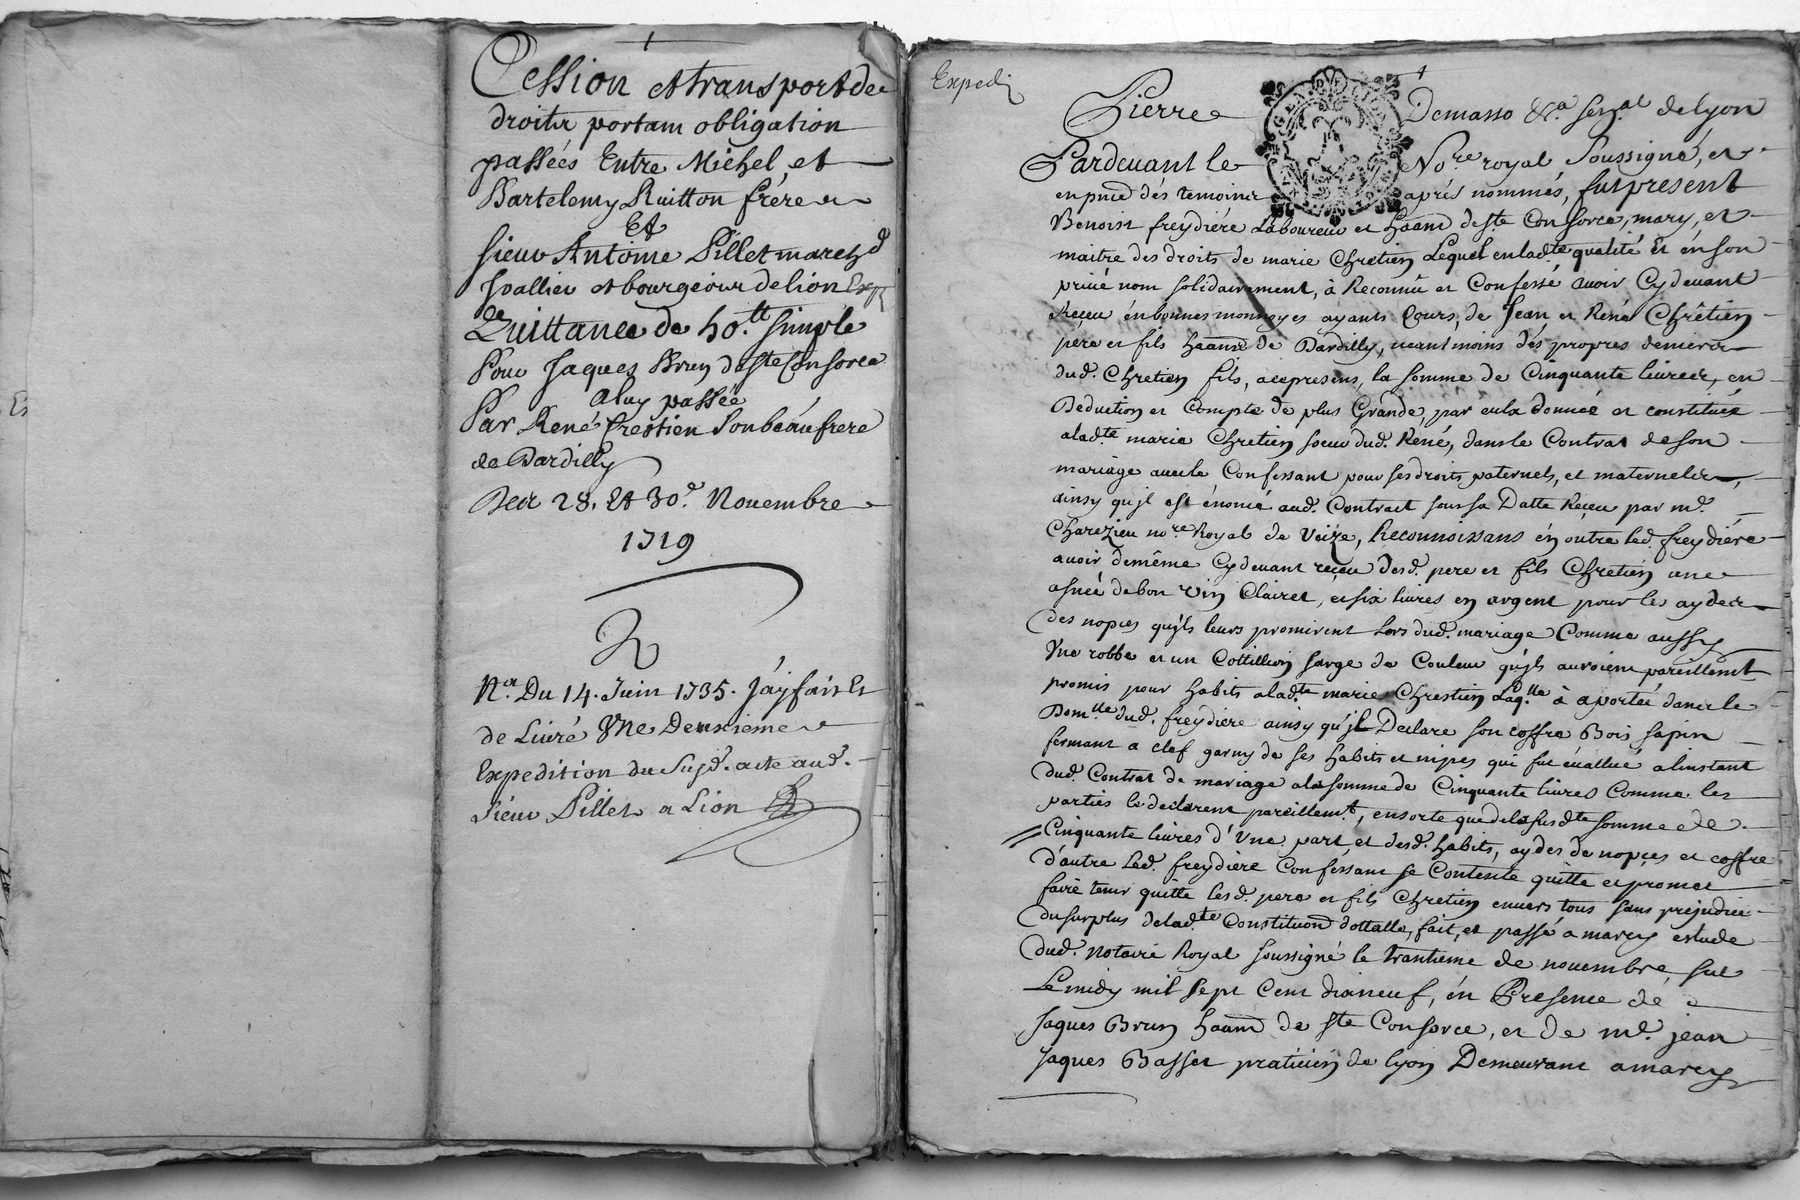 Cession et transport de
droits portam obligation
passées Entre Michel, et
Bartelemy Ruitton frére
Et
sieur Antoine Pillet march.d
Joallier et bourgeour de lion Exp
Quittance de 50.tt simple
Pour Jaques Brun de Ste Consorce
a luy passée
Par René Chrestien Son beau frere
de Dardilly
Des 28. Et 30.e Nouembre
1719
N.a Du 14. Juin 1735. J'ay fait Et
de Liuré Vne Deuxieme
Expedition du Susd. acte aud.
Sieur Pillet a Lion
Expedi
Pierre Demasso &c.a sen.al de lyon
Pardeuant le No.re royal Soussigné, et
en pnce des temoins après nommés, fut present
Benoist freydiére Laboureur et haant de ste Consorce, mary, et
maitre des droits de marie Chretien Lequel en lad.te qualité Et én son
priué nom solidairement, à Reconnû et Confessé auoir Cydeuant
Reçeu én bonnes monnoyes ayants Cours, de Jean et René Chrêtien
pere et fils haants de Dardilly, neantmoins des propres deniers
dud. Chretien fils, acepresens, la somme de Cinquante liures, en
Deduction et Compte de plus Grande, par eulx donnée et constituée
alad.te marie Chretien soeur dud. René, dans le Contrat de son
mariage auec le Confessant pour ses droits paternels, et maternels,
ainsy qu'jl est énoncé aud. Contract sous sa Datte Reçeu par m.e
Charezieu no.re Royal de Vaize, Reconnoissans én outre led. freydiére
auoir demême Cydeuant reçeu desd. pere et fils Chretien une
asnée de bon vin Clairet, et six liures en argent pour les aydes
des nopces qu'jls leurs promirent Lors dud. mariage Comme aussy
Vne robbe et un Cottillion sarge de Couleur qu'jls auroient pareillemt
promis pour habits alad.te marie Chrestien Laq.lle à aportée dans le
Dom.lle dud. freydiere ainsy qu'jl Declare son coffre Bois sapin
fermant a clef garny de ses habits et nipes qui fut éuallué alinstant
dud. Contrat de mariage ala somme de Cinquante liures Comme les
parties le declarent pareillem.t, ensorte que de la susd.te somme de
Cinquante liures d'Vne part, et desd. habits, aydes de nopces et coffre
d'autre Led. freydiere Confessant se Contente quitte et promet
faire tenir quitte lesd. pere et fils Chretien enuers tous sans prejudice
du surplus de lad.te Constitution dottalle, fait, et passé a marcy estude
dud. Notaire Royal soussigné le trantieme de nouembre, sur
Le midy mil sept Cent dixneuf, én Presence de
Jaques Brun haant de ste Consorce, et de m.e jean
Jaques Basset praticién de lyon Demeurant a marcy